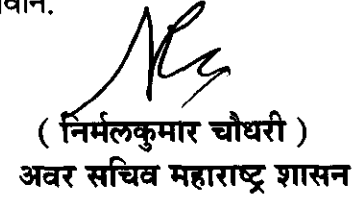 ( निर्मलकुमार चौधरी )
अवर सचिव महाराष्ट्र शासन